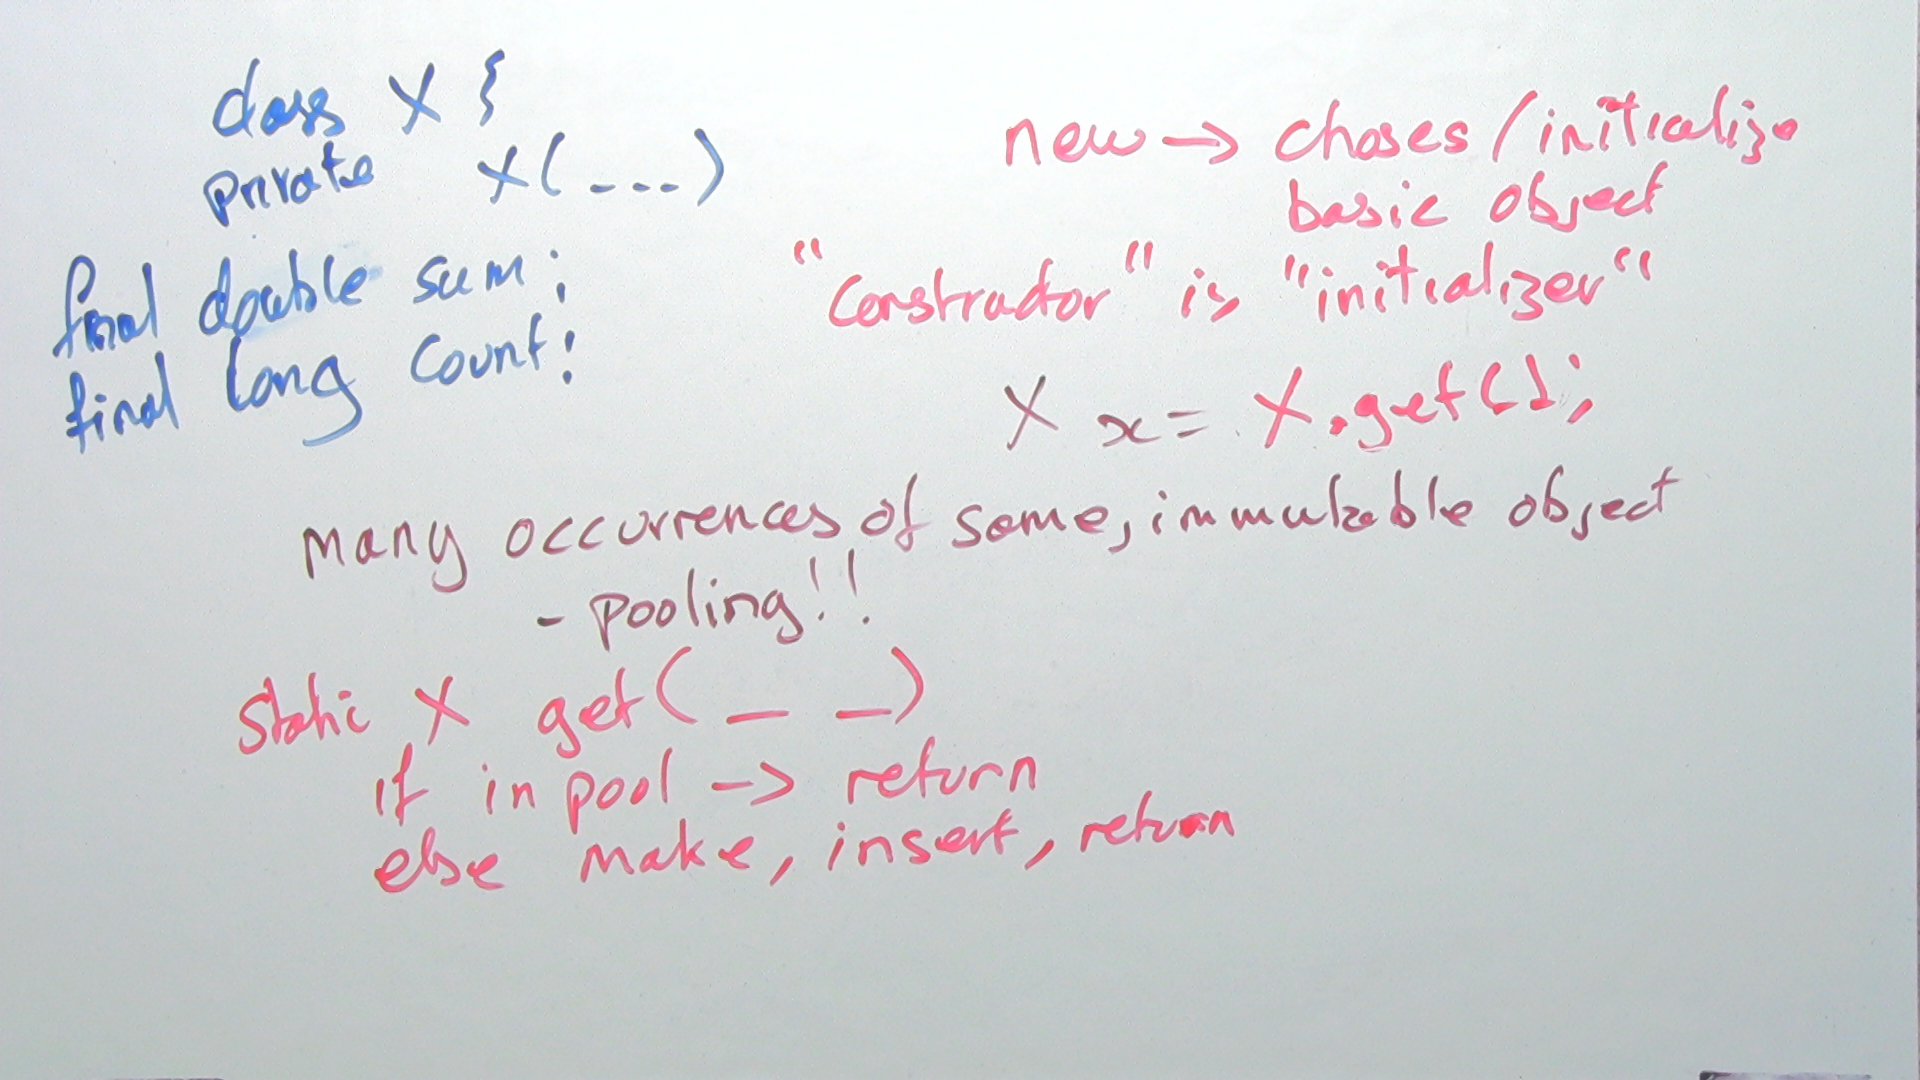 class X {
private X(---)
final double sum;
final long count;
new -> choses/initialize
basic object
"constructor" is "initializer"
X x = X.get();
many occurrences of same, immutable object
- pooling!!
static X get(_ _)
if in pool -> return
else make, insert, return